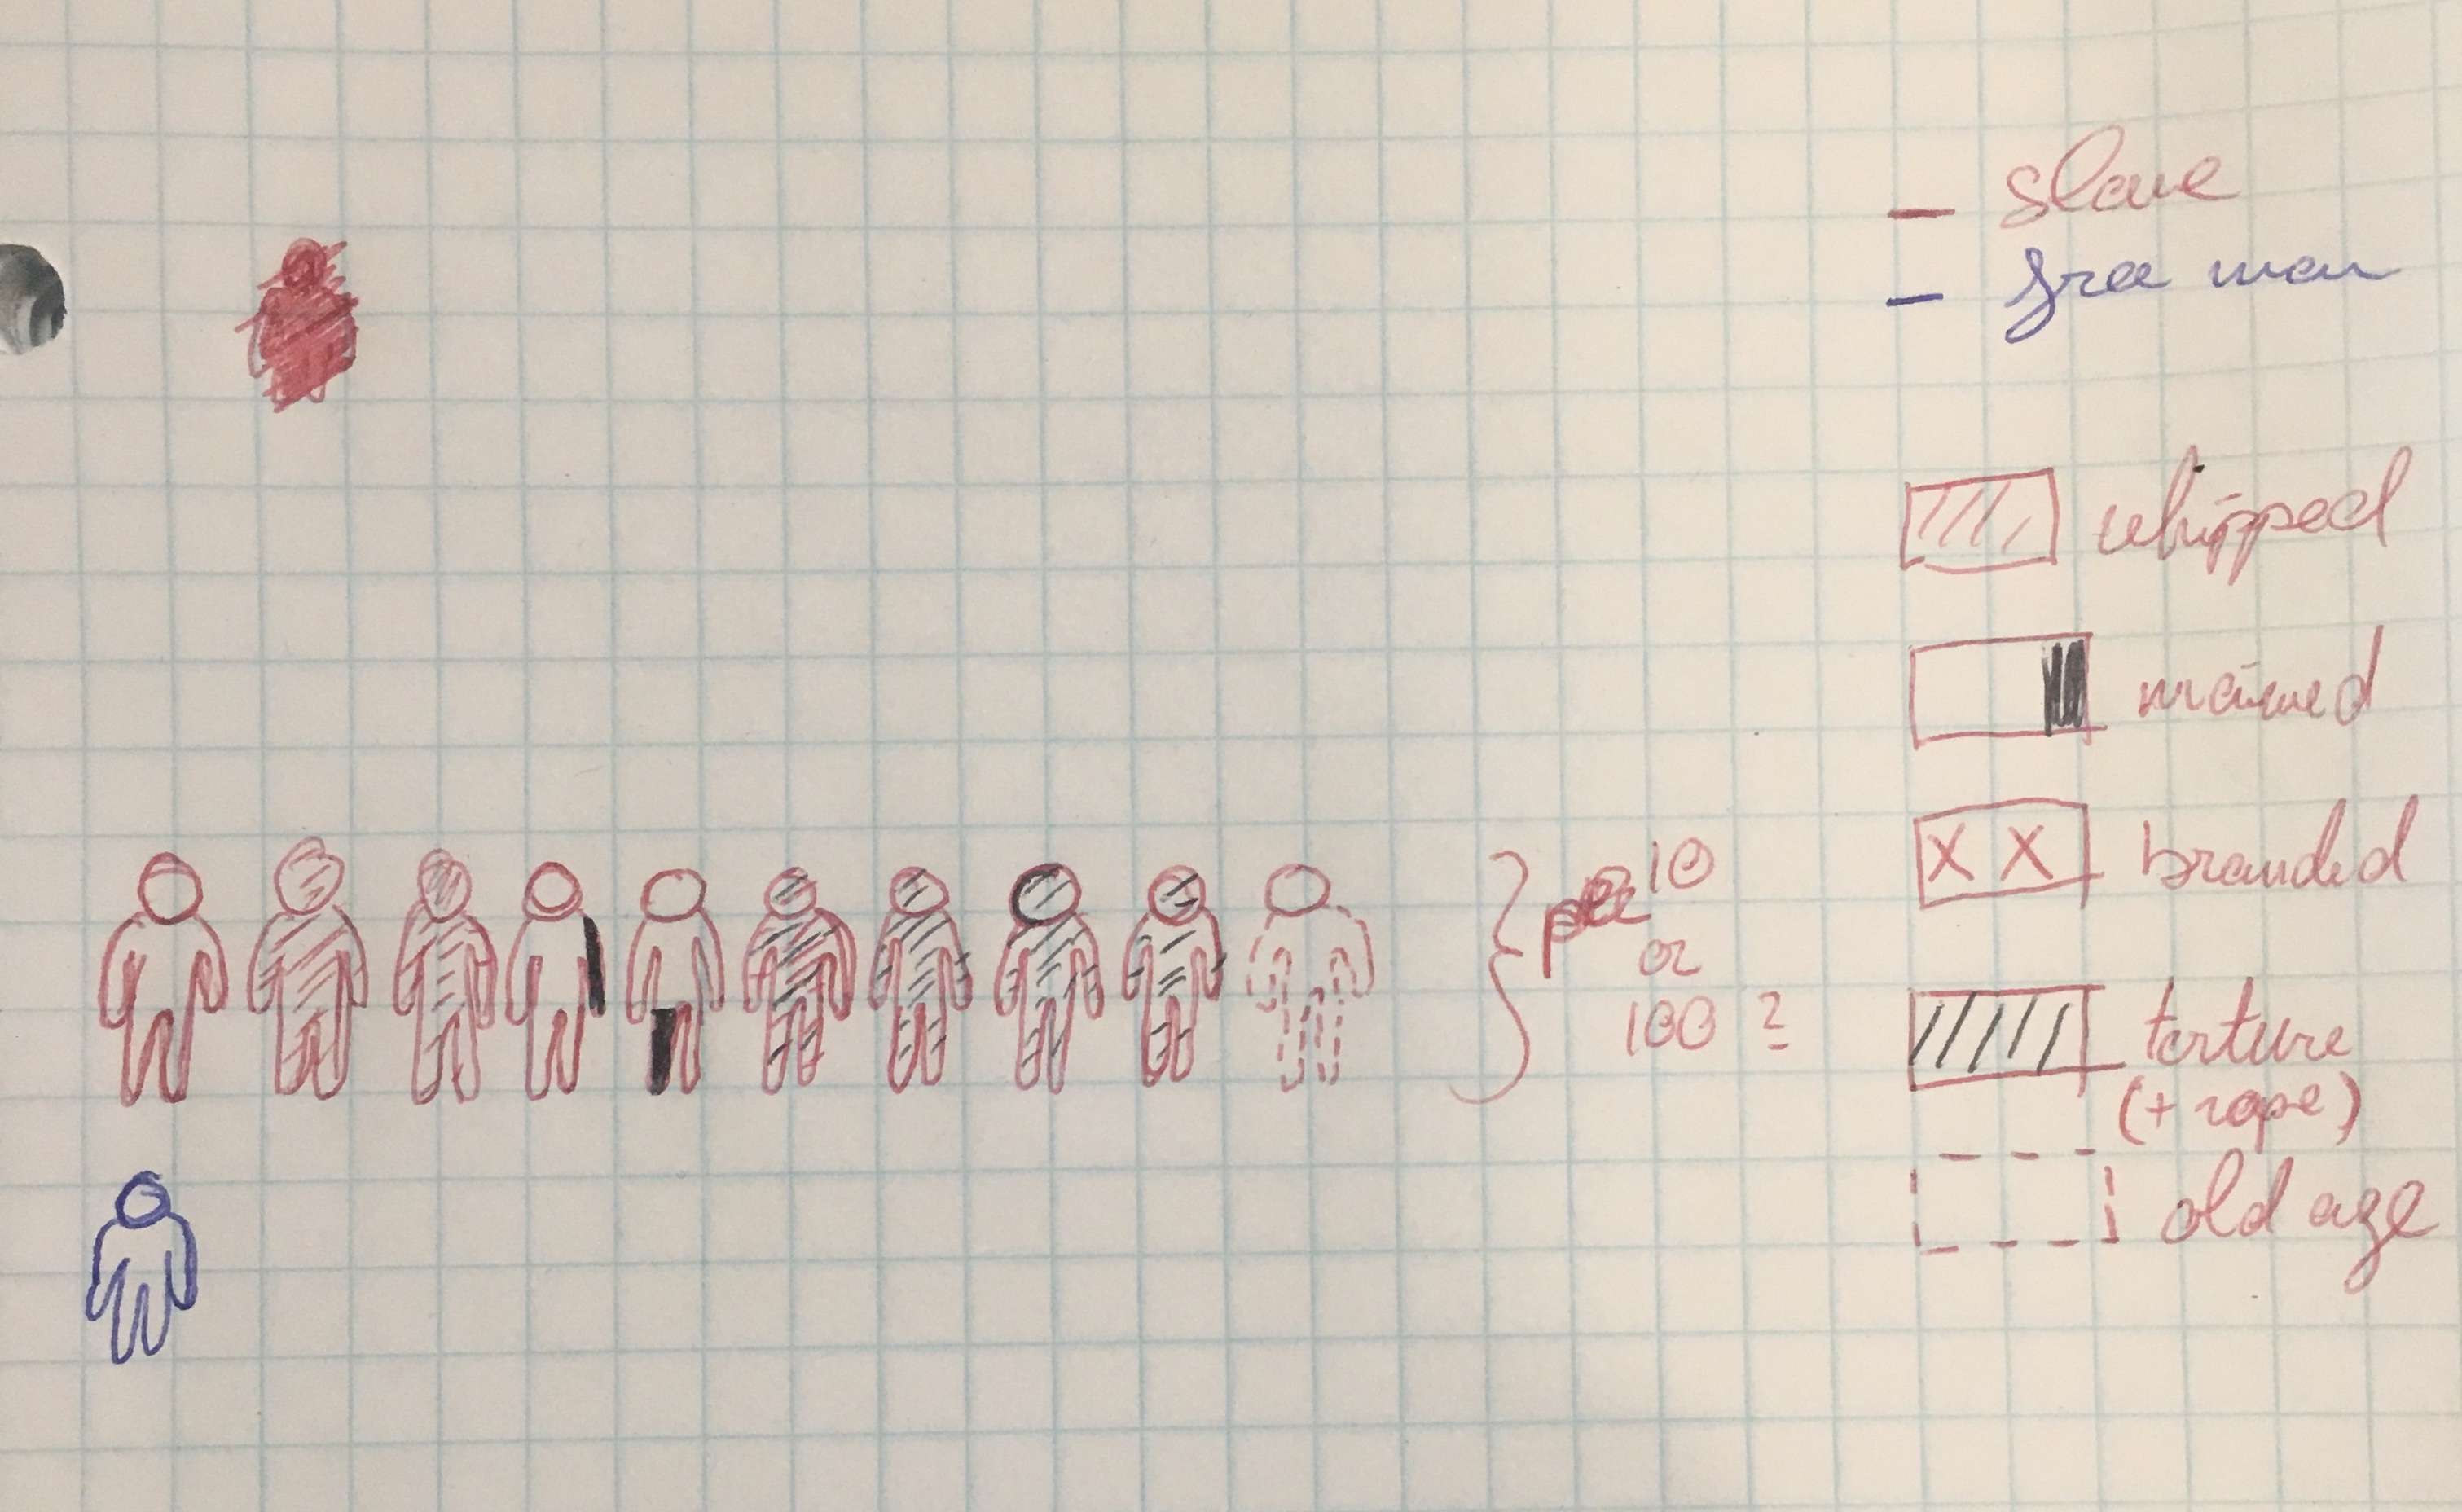 — slave
— free man
whipped
maimed
branded
torture
(+ rape)
old age
per 10
or
100 ?